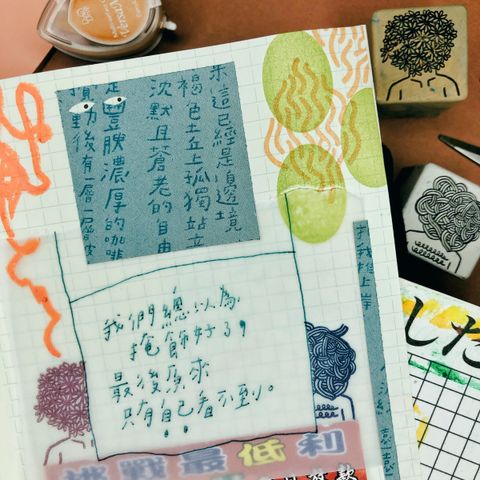 來這已經是邊境
褐色土丘上孤獨站立
沈默且蒼老的自由
是豐腴濃厚的咖啡
後有一層一層皮
我們總以為
掩飾好了，
最後原來
只有自己看不到。
戰最低利
した